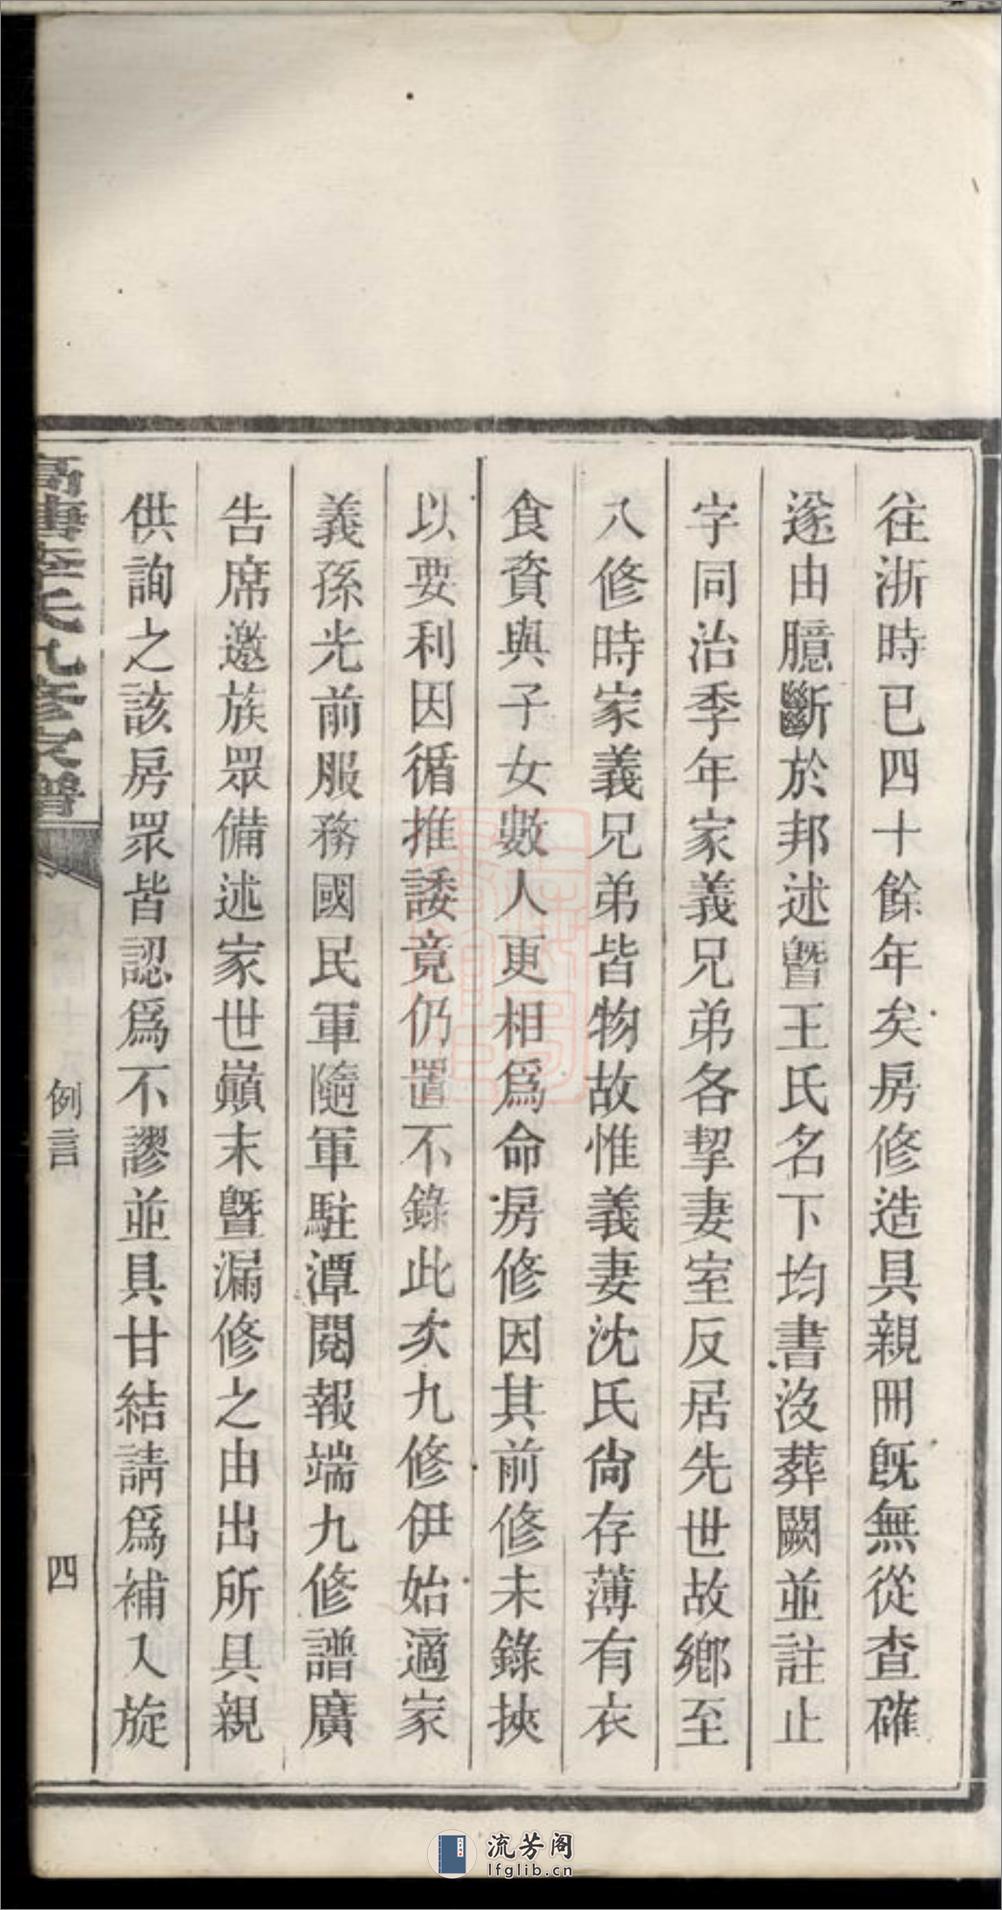 往浙時已四十餘年矣房修造具親冊既無從查確
遂由臆斷於邦述暨王氏名下均書沒葬闕並註止
字同治季年家義兄弟各挈妻室反居先世故鄉至
八修時家義兄弟皆物故惟義妻沈氏尙存薄有衣
食資與子女數人更相爲命房修因其前修未錄挾
以要利因循推諉竟仍置不錄此次九修伊始適家
義孫光前服務國民軍隨軍駐潭閱報端九修譜廣
告席邀族眾備述家世巔末暨漏修之由出所具親
供詢之該房眾皆認爲不謬並具甘結請爲補入旋
李氏九修家譜
例言
四
流芳阁
lfglib.cn